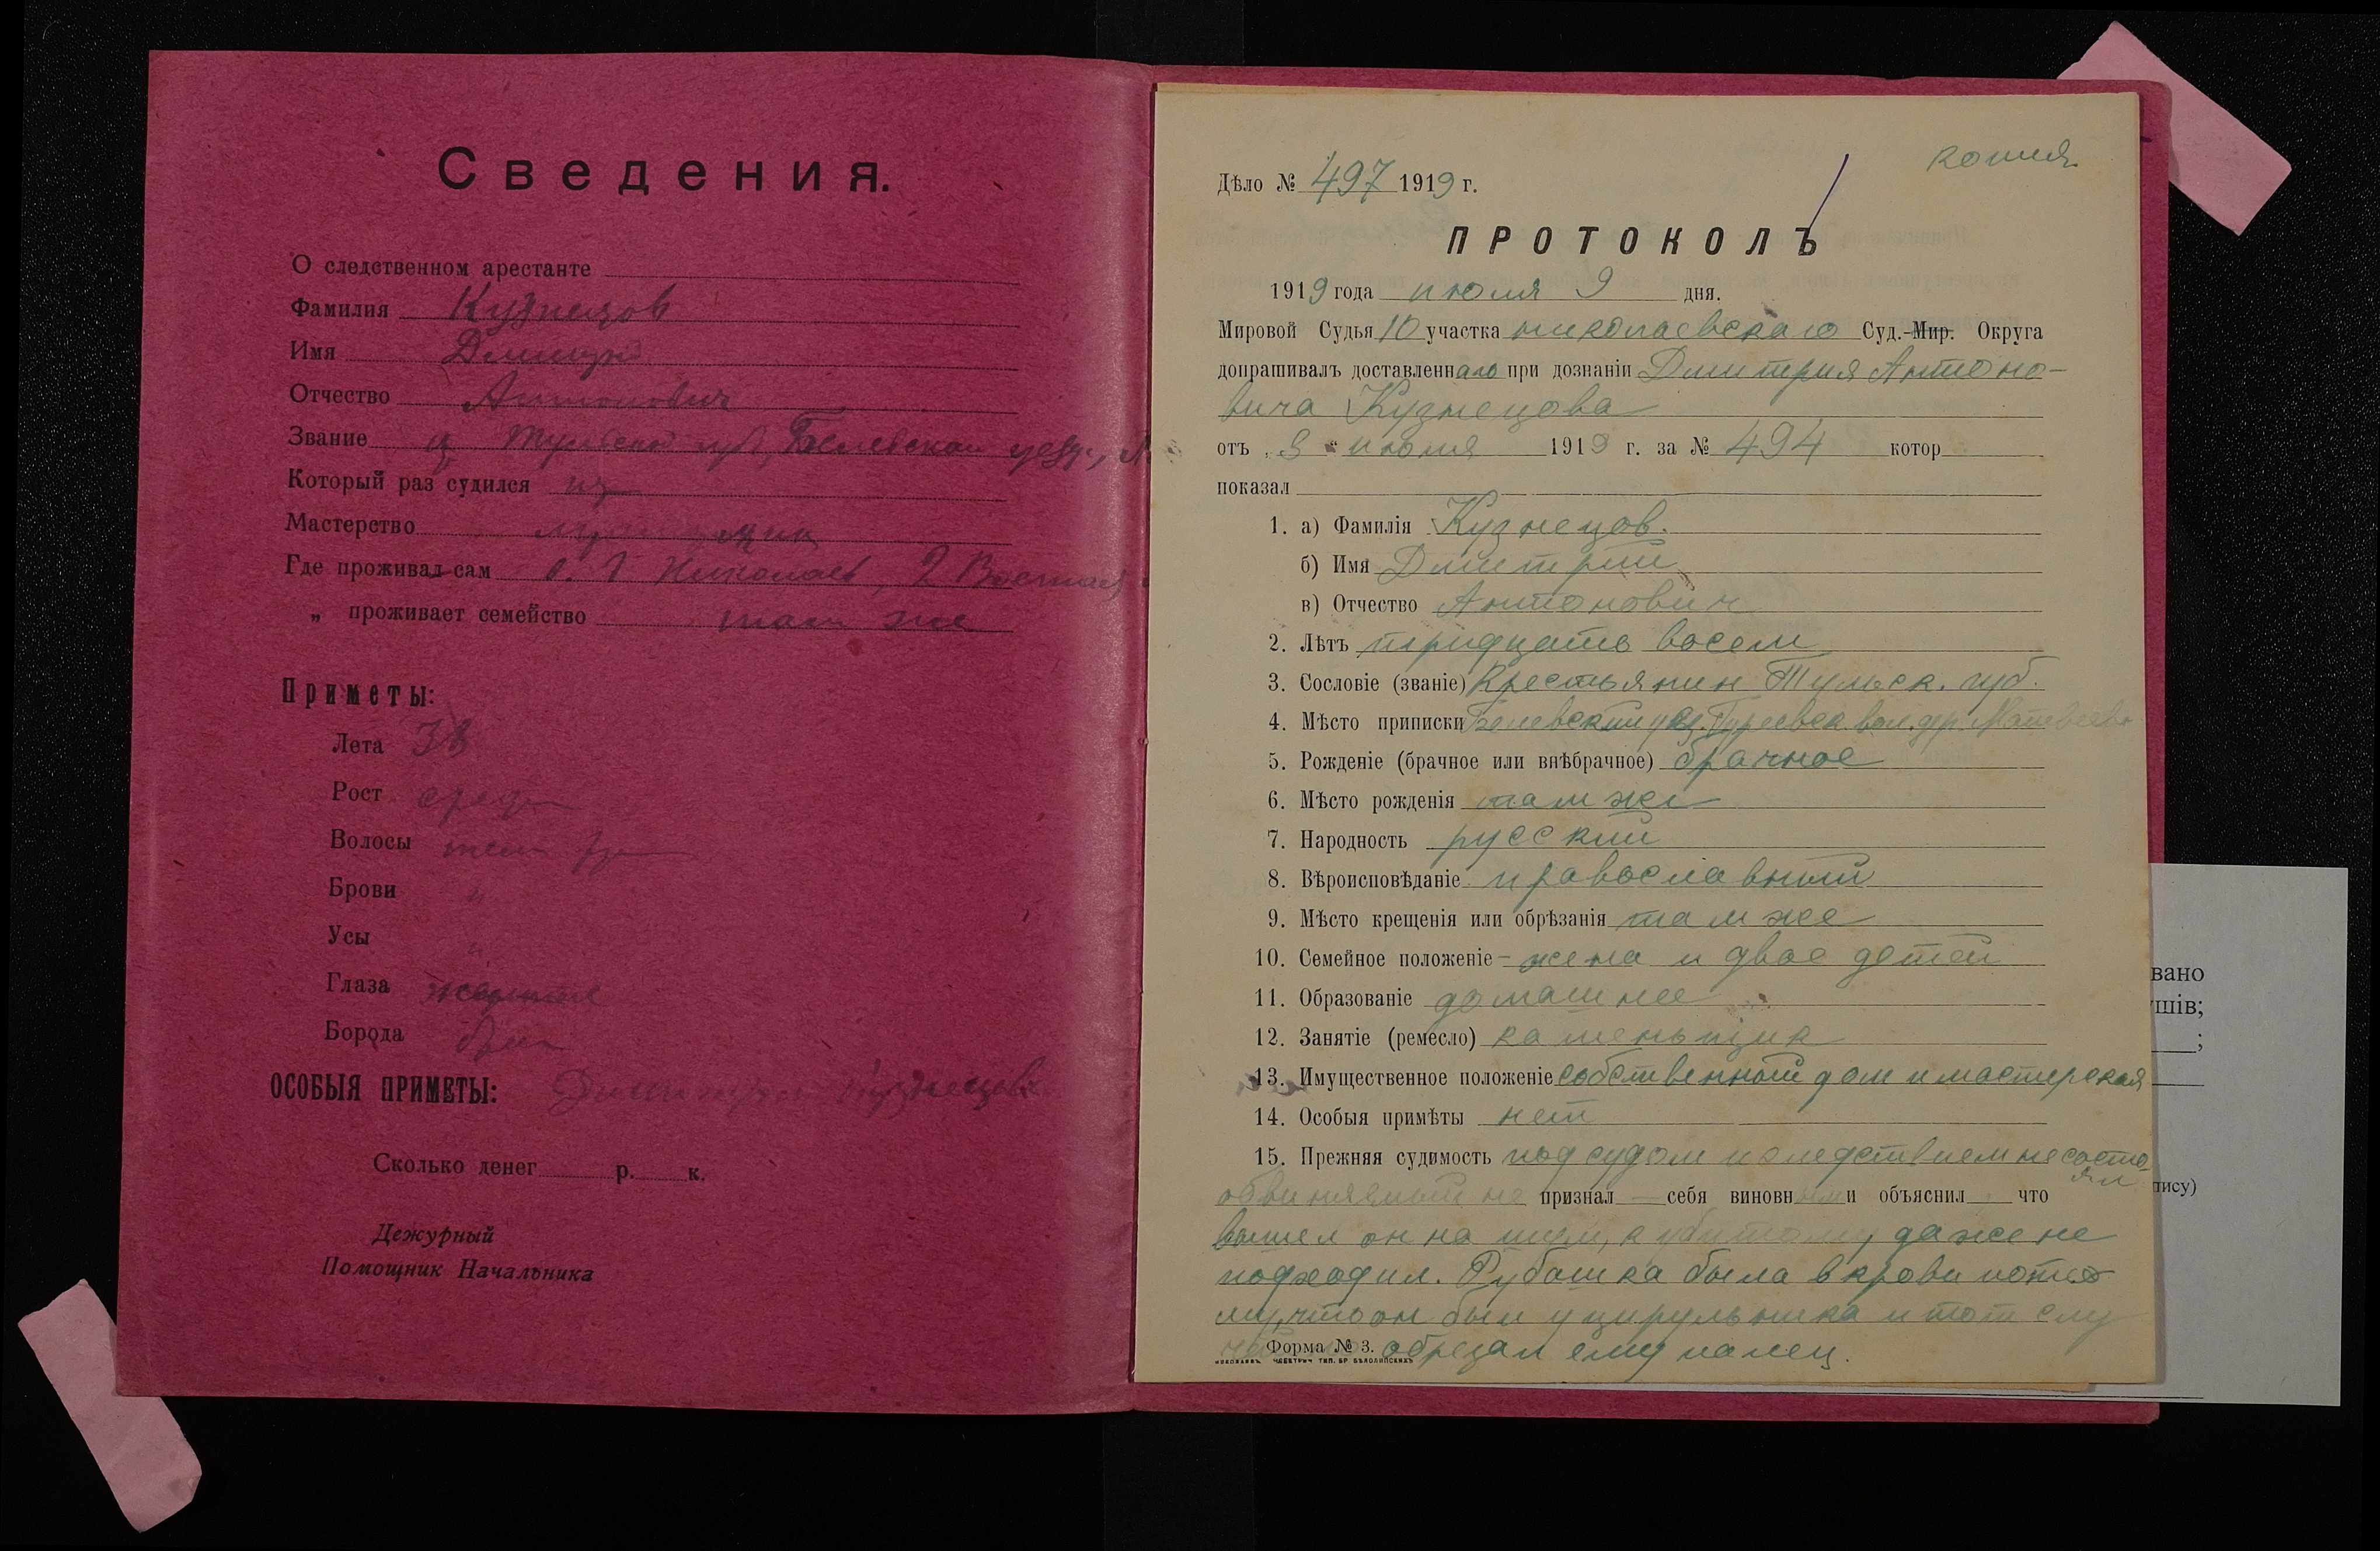 Сведения.
О следственном арестанте
Фамилия Кузнецов
Имя Дмитрий
Отчество Антонович
Звание из Тульской губ, Белевскаи уезда,
Который раз судился
Мастерство
Где проживал сам в. г Николаев, 2 Военная
„ проживает семейство там же
Приметы:
Лета 38
Рост средн
Волосы темн
Брови "
Усы "
Глаза
Борода
ОСОБЫЯ ПРИМЕТЫ: Димитрий Кузнецов
Сколько денег р. к.
Дежурный
Помощник Начальника
копия
Дѣло № 497 1919 г.
ПРОТОКОЛЪ
1919 года июля 9 дня.
Мировой Судья 10 участка николаевскаго Суд.-Мир. Округа
допрашивалъ доставленнаго при дознаніи Дмитрия Антоно-
вича Кузнецова
отъ „8 " июля 1919 г. за № 494 котор
показал
1. а) Фамилія Кузнецов.
б) Имя Дмитрий
в) Отчество Антонович
2. Лѣтъ тридцать восем
3. Сословіе (званіе) Крестьянин Тульск. губ.
4. Мѣсто приписки Белевский уез. вол. дер. Матвеево
5. Рожденіе (брачное или внѣбрачное) брачное
6. Мѣсто рожденія там же
7. Народность русский
8. Вѣроисповѣданіе православный
9. Мѣсто крещенія или обрѣзанія там же
10. Семейное положеніе - жена и двое детей
11. Образованіе домашнее
12. Занятіе (ремесло) каменьщик
13. Имущественное положеніе собственный дом и мастерская
14. Особыя примѣты нет
15. Прежняя судимость под судом и следствием не состо
ял
обвиняемый не признал себя виновным и объяснил что
вышел он на шум, к убитому даже не
подходил. Рубашка была в крови пото
му, что он был у цирульника и тот ему
обрезал ему палец.
Форма № 3.
вано
шів;
;
пису)